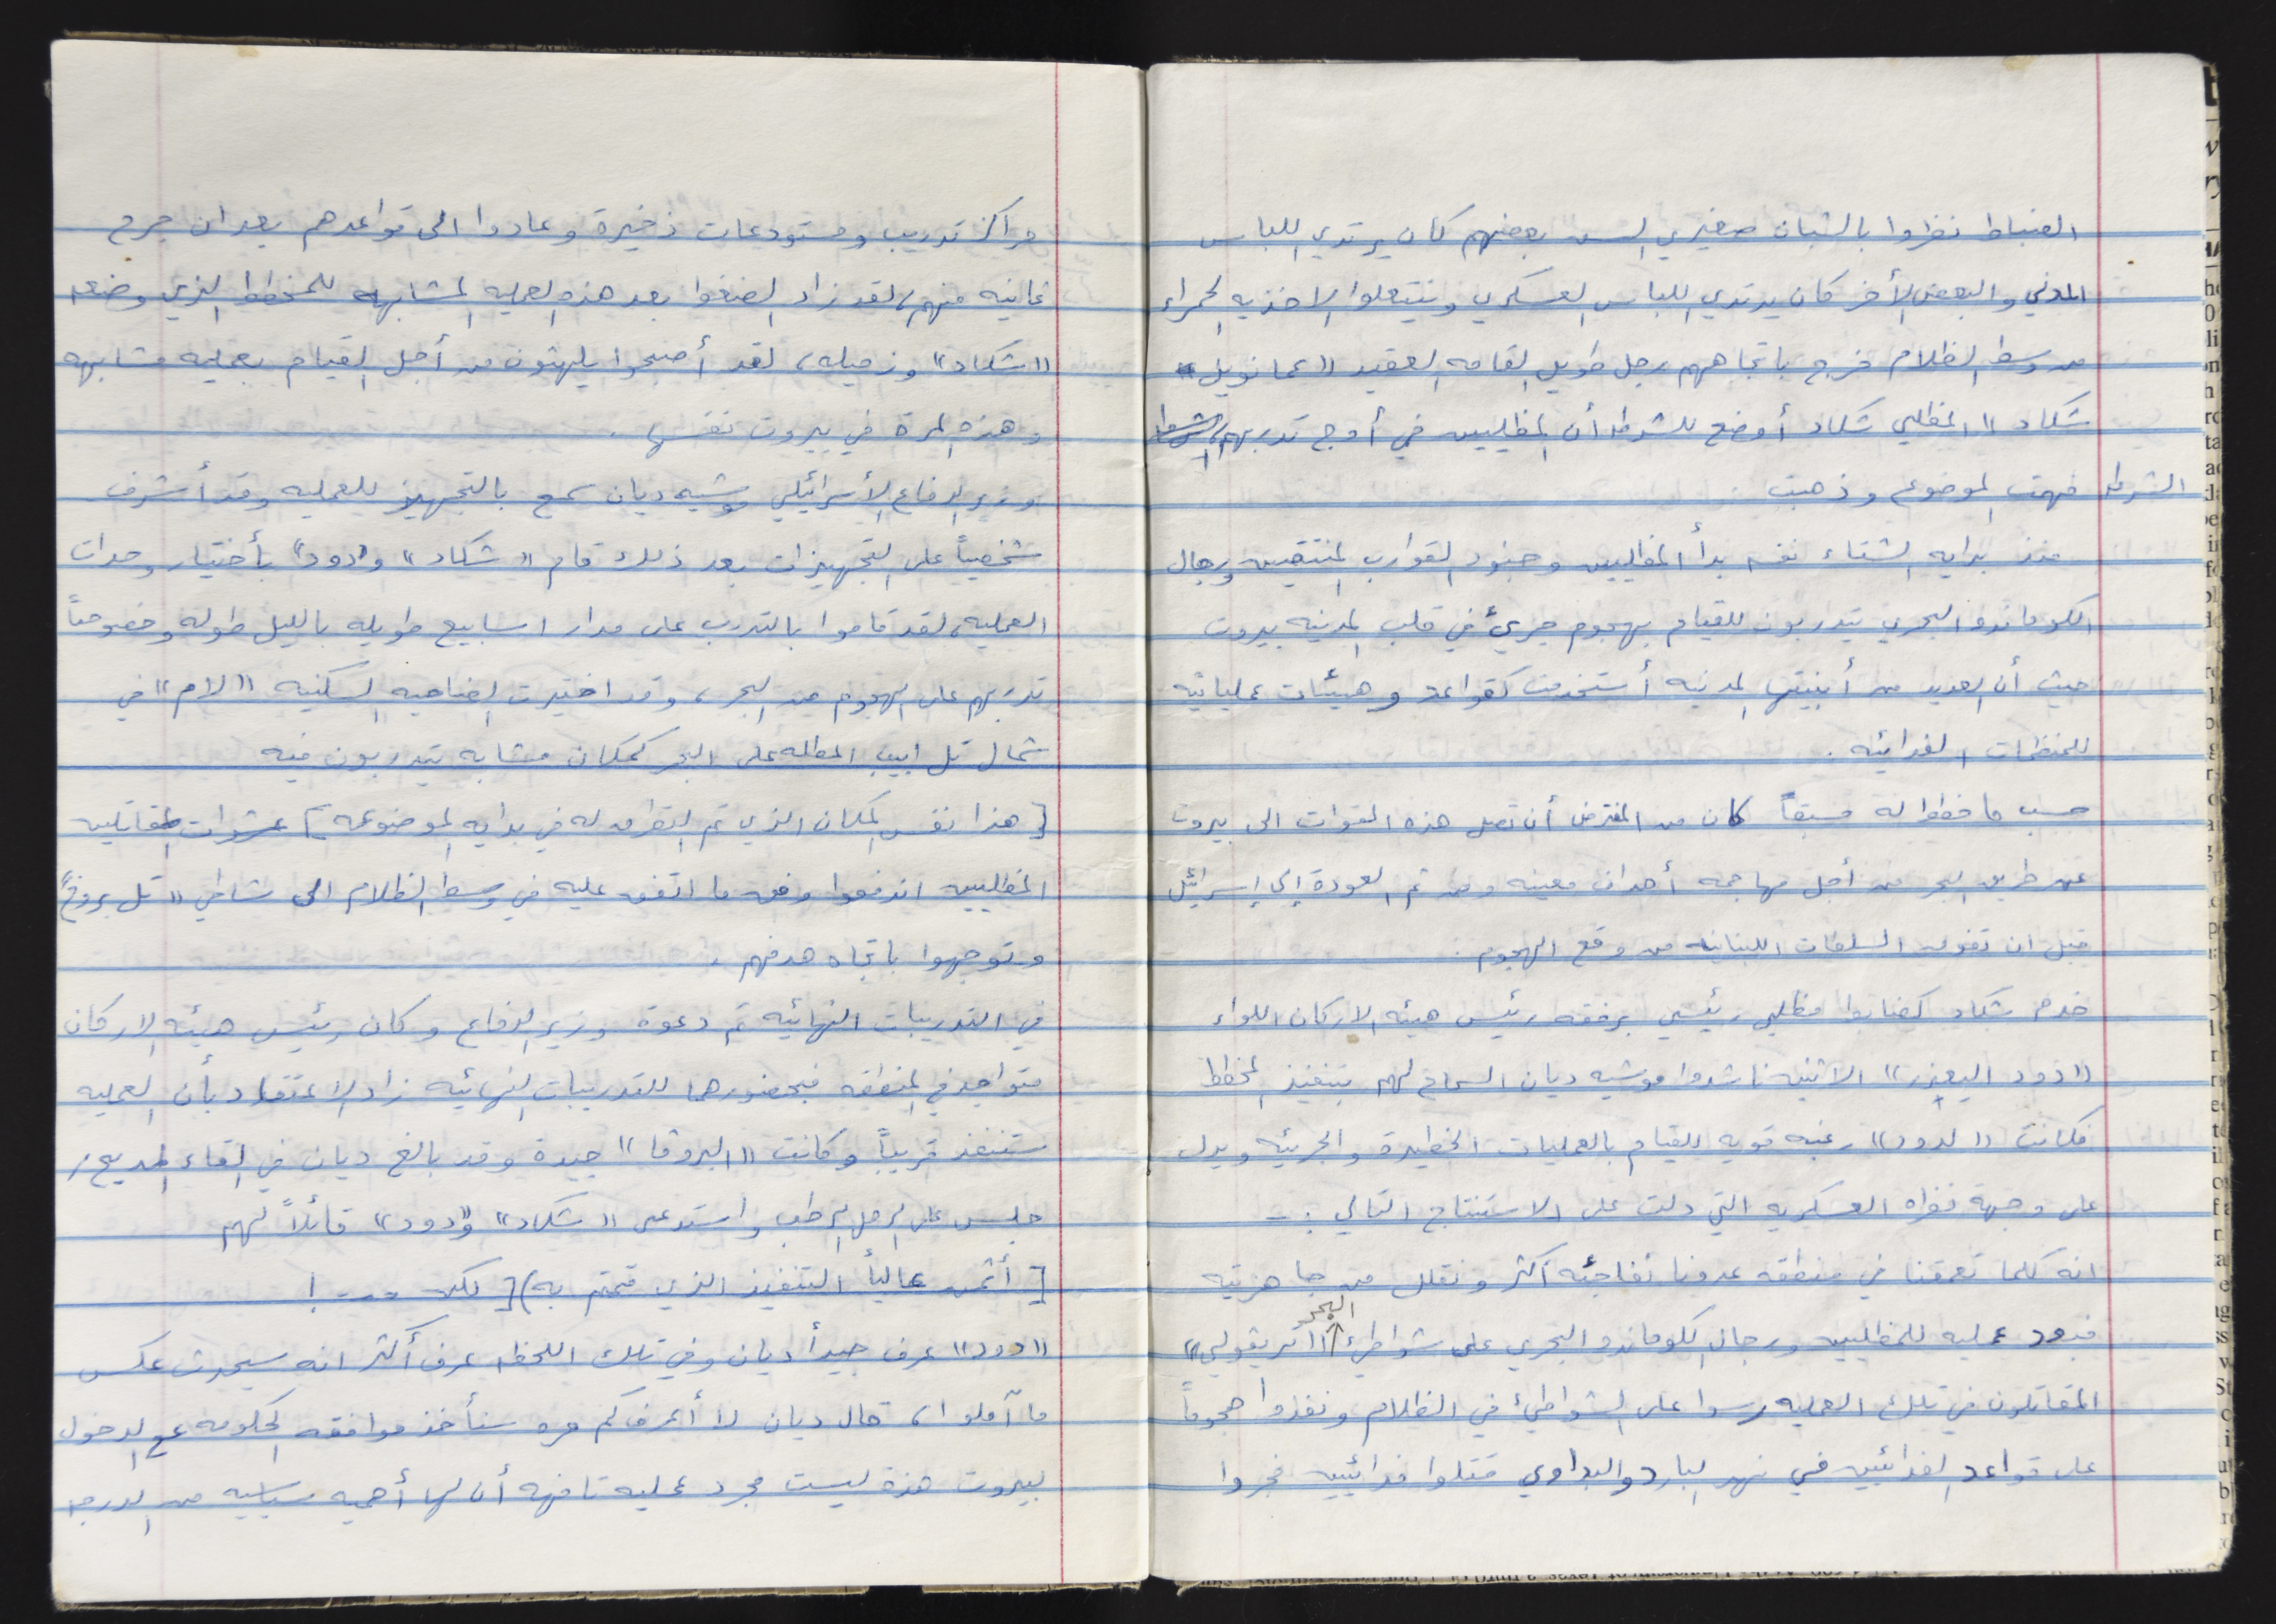 الضباط نظروا بالشبان صغيري السن بعضهم كان يرتدي اللباس
المدني والبعض الأخر كان يرتدي اللباس العسكري وينتعلوا الاحذيه الحمراء
من وسط الظلام خرج باتجاههم رجل طويل القامه العقيد "عمانويل
شكاد" المظلي شكاد أوضح للشرطه أن المظليين في أوج تدربهم،
الشرطه فهمت الموضوع وذهبت.
منذ بدايه الشتاء نفسه بدأ المظليين وجنود القوارب المنتقيين ورجال
الكوماندو البحري يتدربون للقيام بهجوم جريئ في قلب المدينه بيروت
حيث أن العديد من أبنيتها المدنيه أستخدمت كقواعد وهيئات عملياتيه
للمنظمات الفدائيه.
حسب ما خططوا له مسبقاً كان من المفترض أن تصل هذه القوات الى بيروت
عن طريق البحر من أجل مهاجمه أهداف معينه ومن ثم العودة إلى إسرائيل
قبل ان تفوق السلطات اللبنانيه من وقع الهجوم.
خدم شكاد كضابط مظلي رئيسي برفقه رئيس هيئه الاركان اللواء
"دود اليعزر" الاثنين ناشدوا موشيه ديان السماح لهم بتنفيذ المخطط
فكانت "لدود" رغبه قويه للقيام بالعمليات الخطيرة والجريئه ويدل
على وجهة نظراه العسكريه التي دلت على الاستنتاج التالي :-
انه كلما تعمقنا في منطقه عدونا نفاجئه أكثر ونقلل من جاهزيته
فبعد عمليه للمظليين ورجال الكوماندو البحري على شواطئ البحر "اتريقولي"
المقاتلون في تلك العمليه رسوا على الشواطئ في الظلام ونفذوا هجوماً
على قواعد الفدائيين في نهر البارد والبداوي قتلوا فدائيين فجروا
مراكز تدريب ومستودعات ذخيرة وعادوا الى قواعدهم بعد ان جرح
ثمانيه منهم، لقد زاد الضغوا بعد هذه العمليه المشابهه للمخطط الذي وضعه
"شكاد" وزميله، لقد أصبحوا يلهثون من أجل القيام بعمليه مشابهه
وهذه المرة في بيروت نفسها.
وزير الدفاع الأسرائيلي موشيه ديان سمح بالتجهيز للعمليه وقد أشرف
شخصياً على التجهيزات بعد ذلك قام "شكاد" و"دود" بأختيار وحدات
العمليه، لقد قاموا بالتدرب على مدار اسابيع طويله بالليل طوله وخصوصاً
تدربهم على الهجوم من البحر، وقد اختيرت الضاحيه السكنيه "لام" في
شمال تل ابيب المطله على البحر كمكان مشابه يتدربون فيه
[هذا نفس المكان الذي تم التطرق له في بدايه الموضوع] عشرات المقاتلين
المظليين اندفعوا وفق ما اتفق عليه في وسط الظلام الى شاطئ "تل بروخ"
وتوجهوا باتجاه هدفهم.
في التدريبات النهائيه تم دعوة وزير الدفاع وكان رئيس هيئه الاركان
متواجد في المنطقه فبحضورهما للتدريبات النهائيه زاد الاعتقاد بأن العمليه
ستنفذ قريباً وكانت "البروفا" جيدة وقد بالغ ديان في القاء المديح،
جلس على الرمل الرطب واستدعى "شكاد" و"دود" قائلاً لهم
[أثمن عالياً التنفيذ الذي قمتم به)[ لكن ...!
"دود" عرف جيداً ديان وفي تلك اللحظه عرف أكثر انه سيحدث عكس
ما آملوا، قال ديان لا أعرف كم مره سنأخذ موافقه الحكومه مع الدخول
لبيروت هذة ليست مجرد عمليه تافهه أن لها أهميه سياسيه من الدرجه